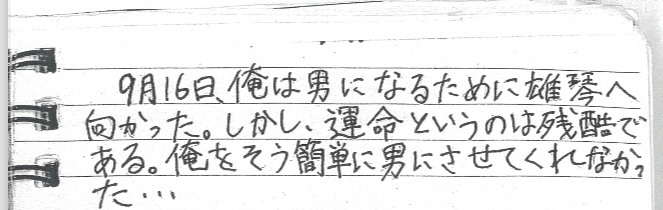 9月16日、俺は男になるために雄琴へ
向かった。しかし、運命というのは残酷で
ある。俺をそう簡単に男にさせてくれなかっ
た…